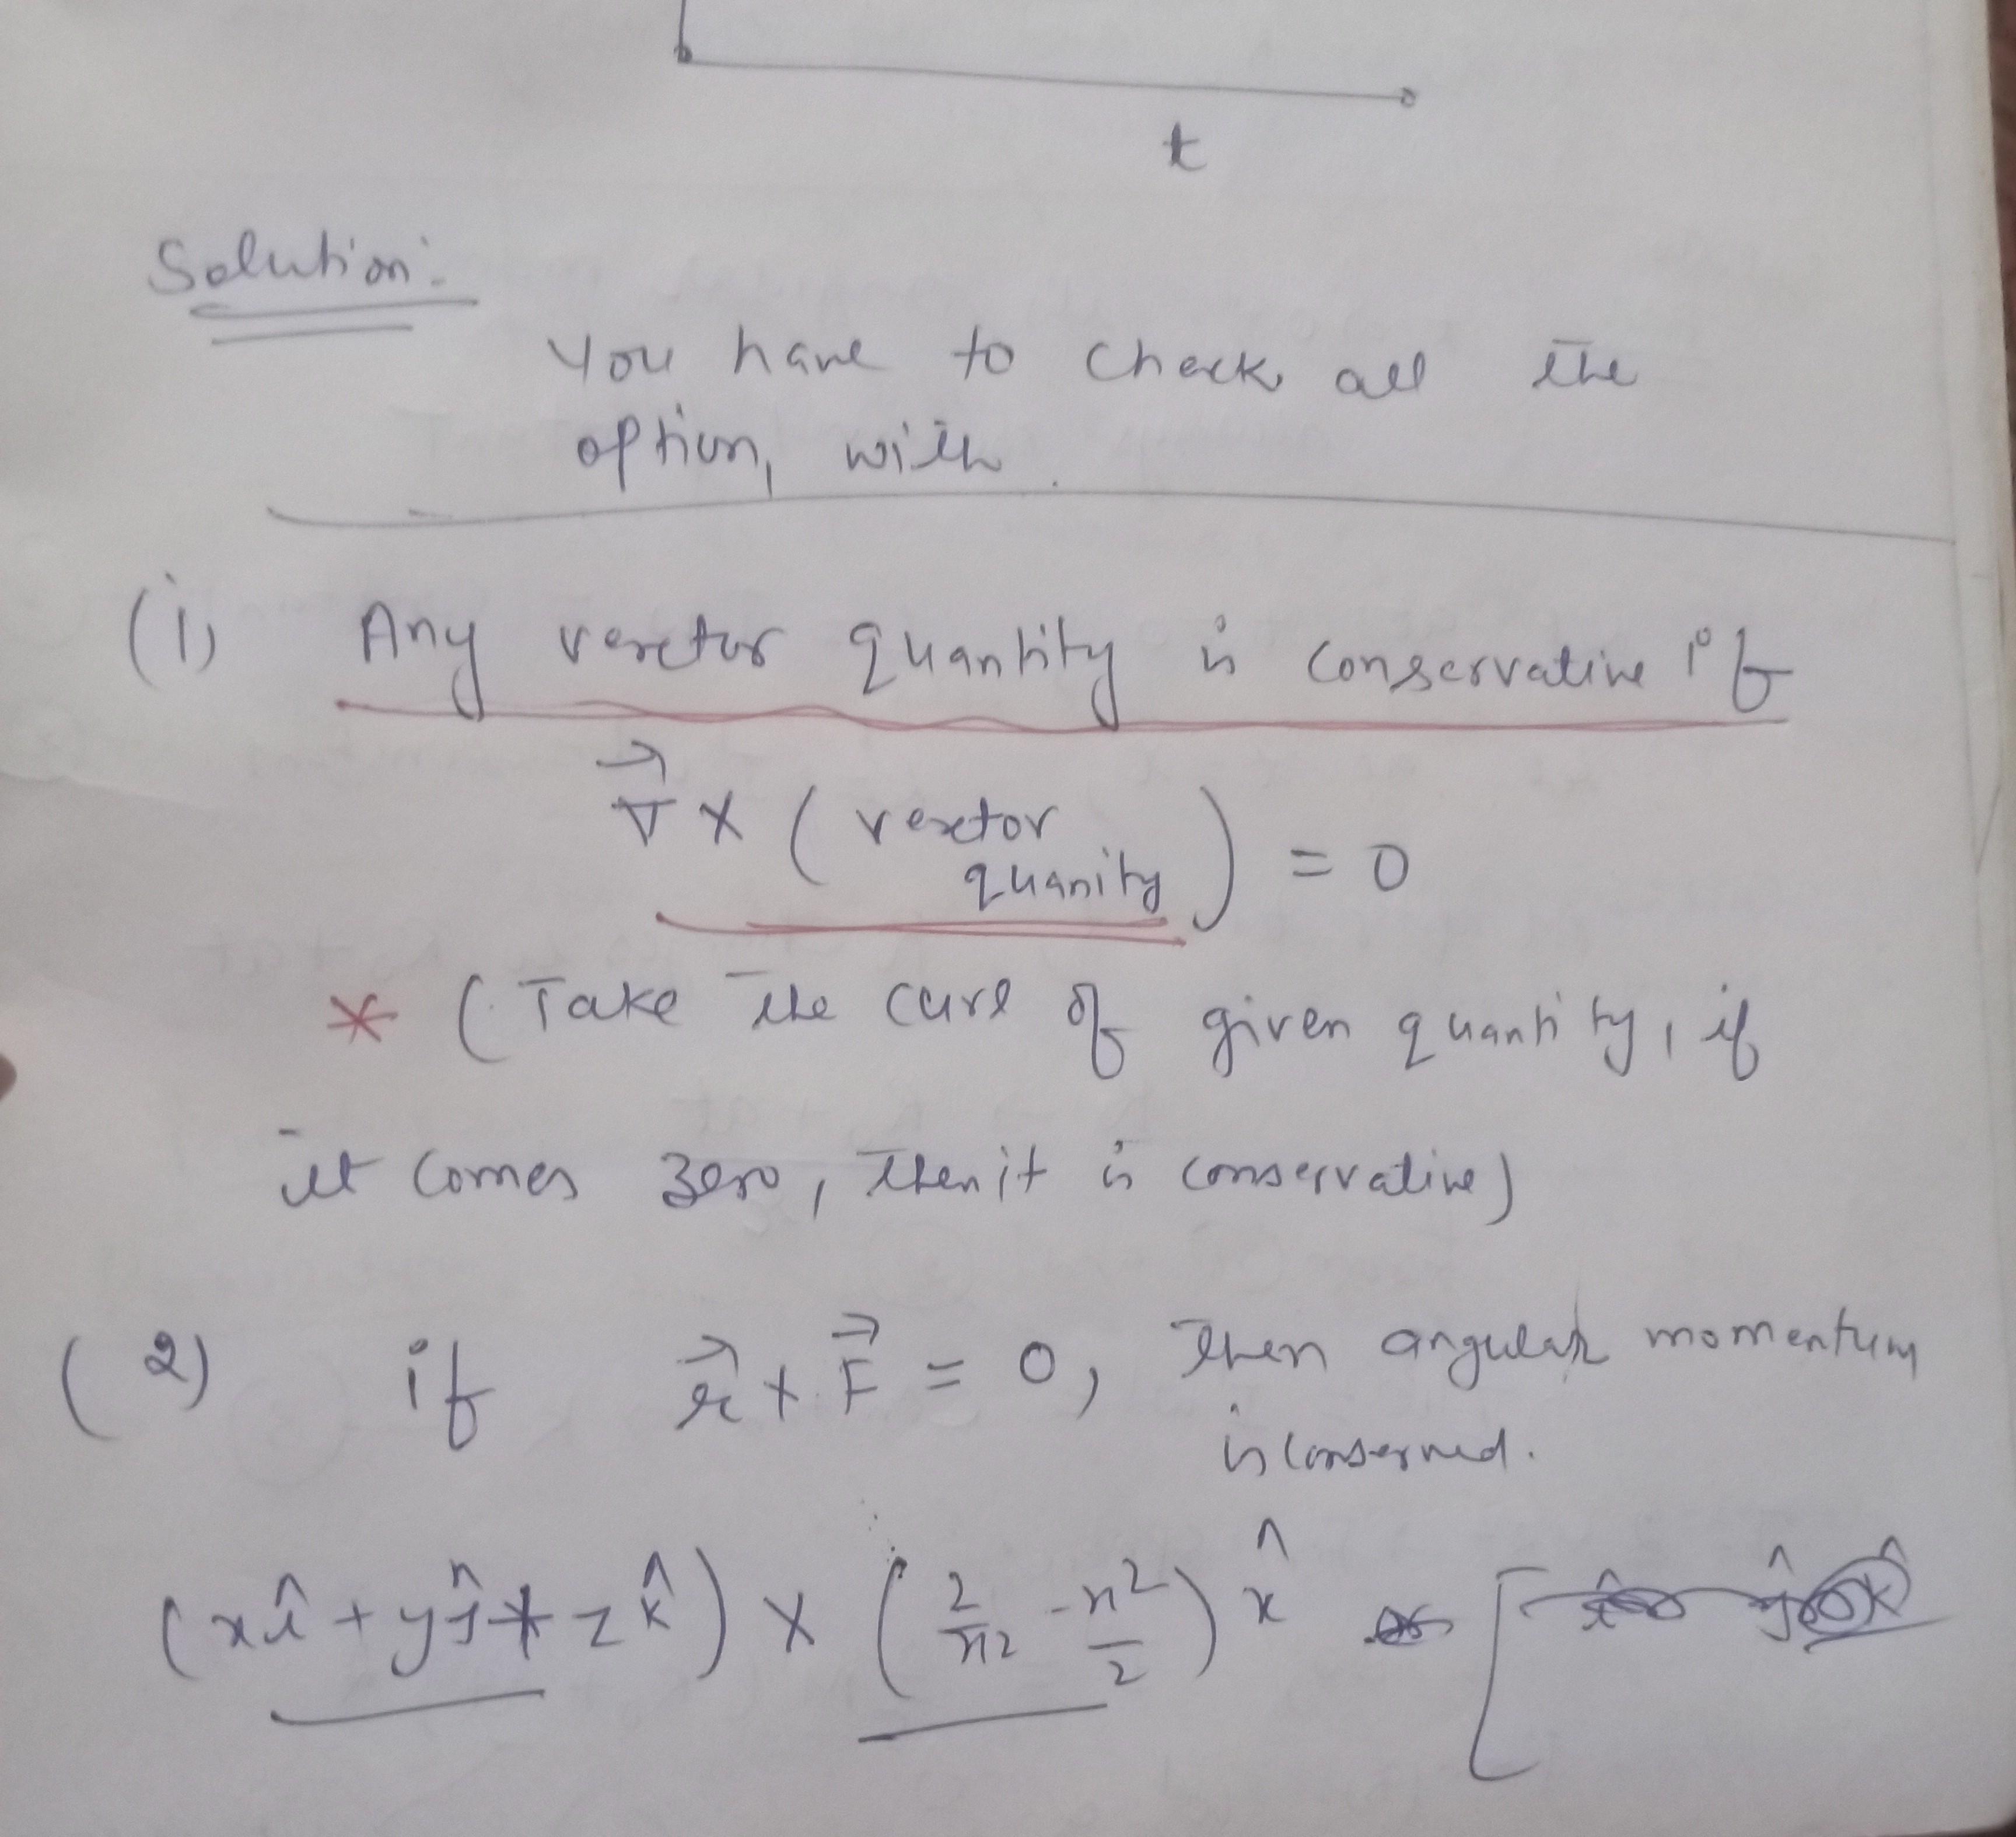 t
Solution:
You have to check all the
option, with
(1) Any vector quantity is conservative if
∇⃗ × ( vector
quanity ) = 0
* ( Take the curl of given quantity, if
it comes zero, then it is conservative)
(2) if r⃗ × F⃗ = 0, then angular momentum
is conserved.
(xî + yĵ + zk̂) × (2/x² - x²/2) x̂